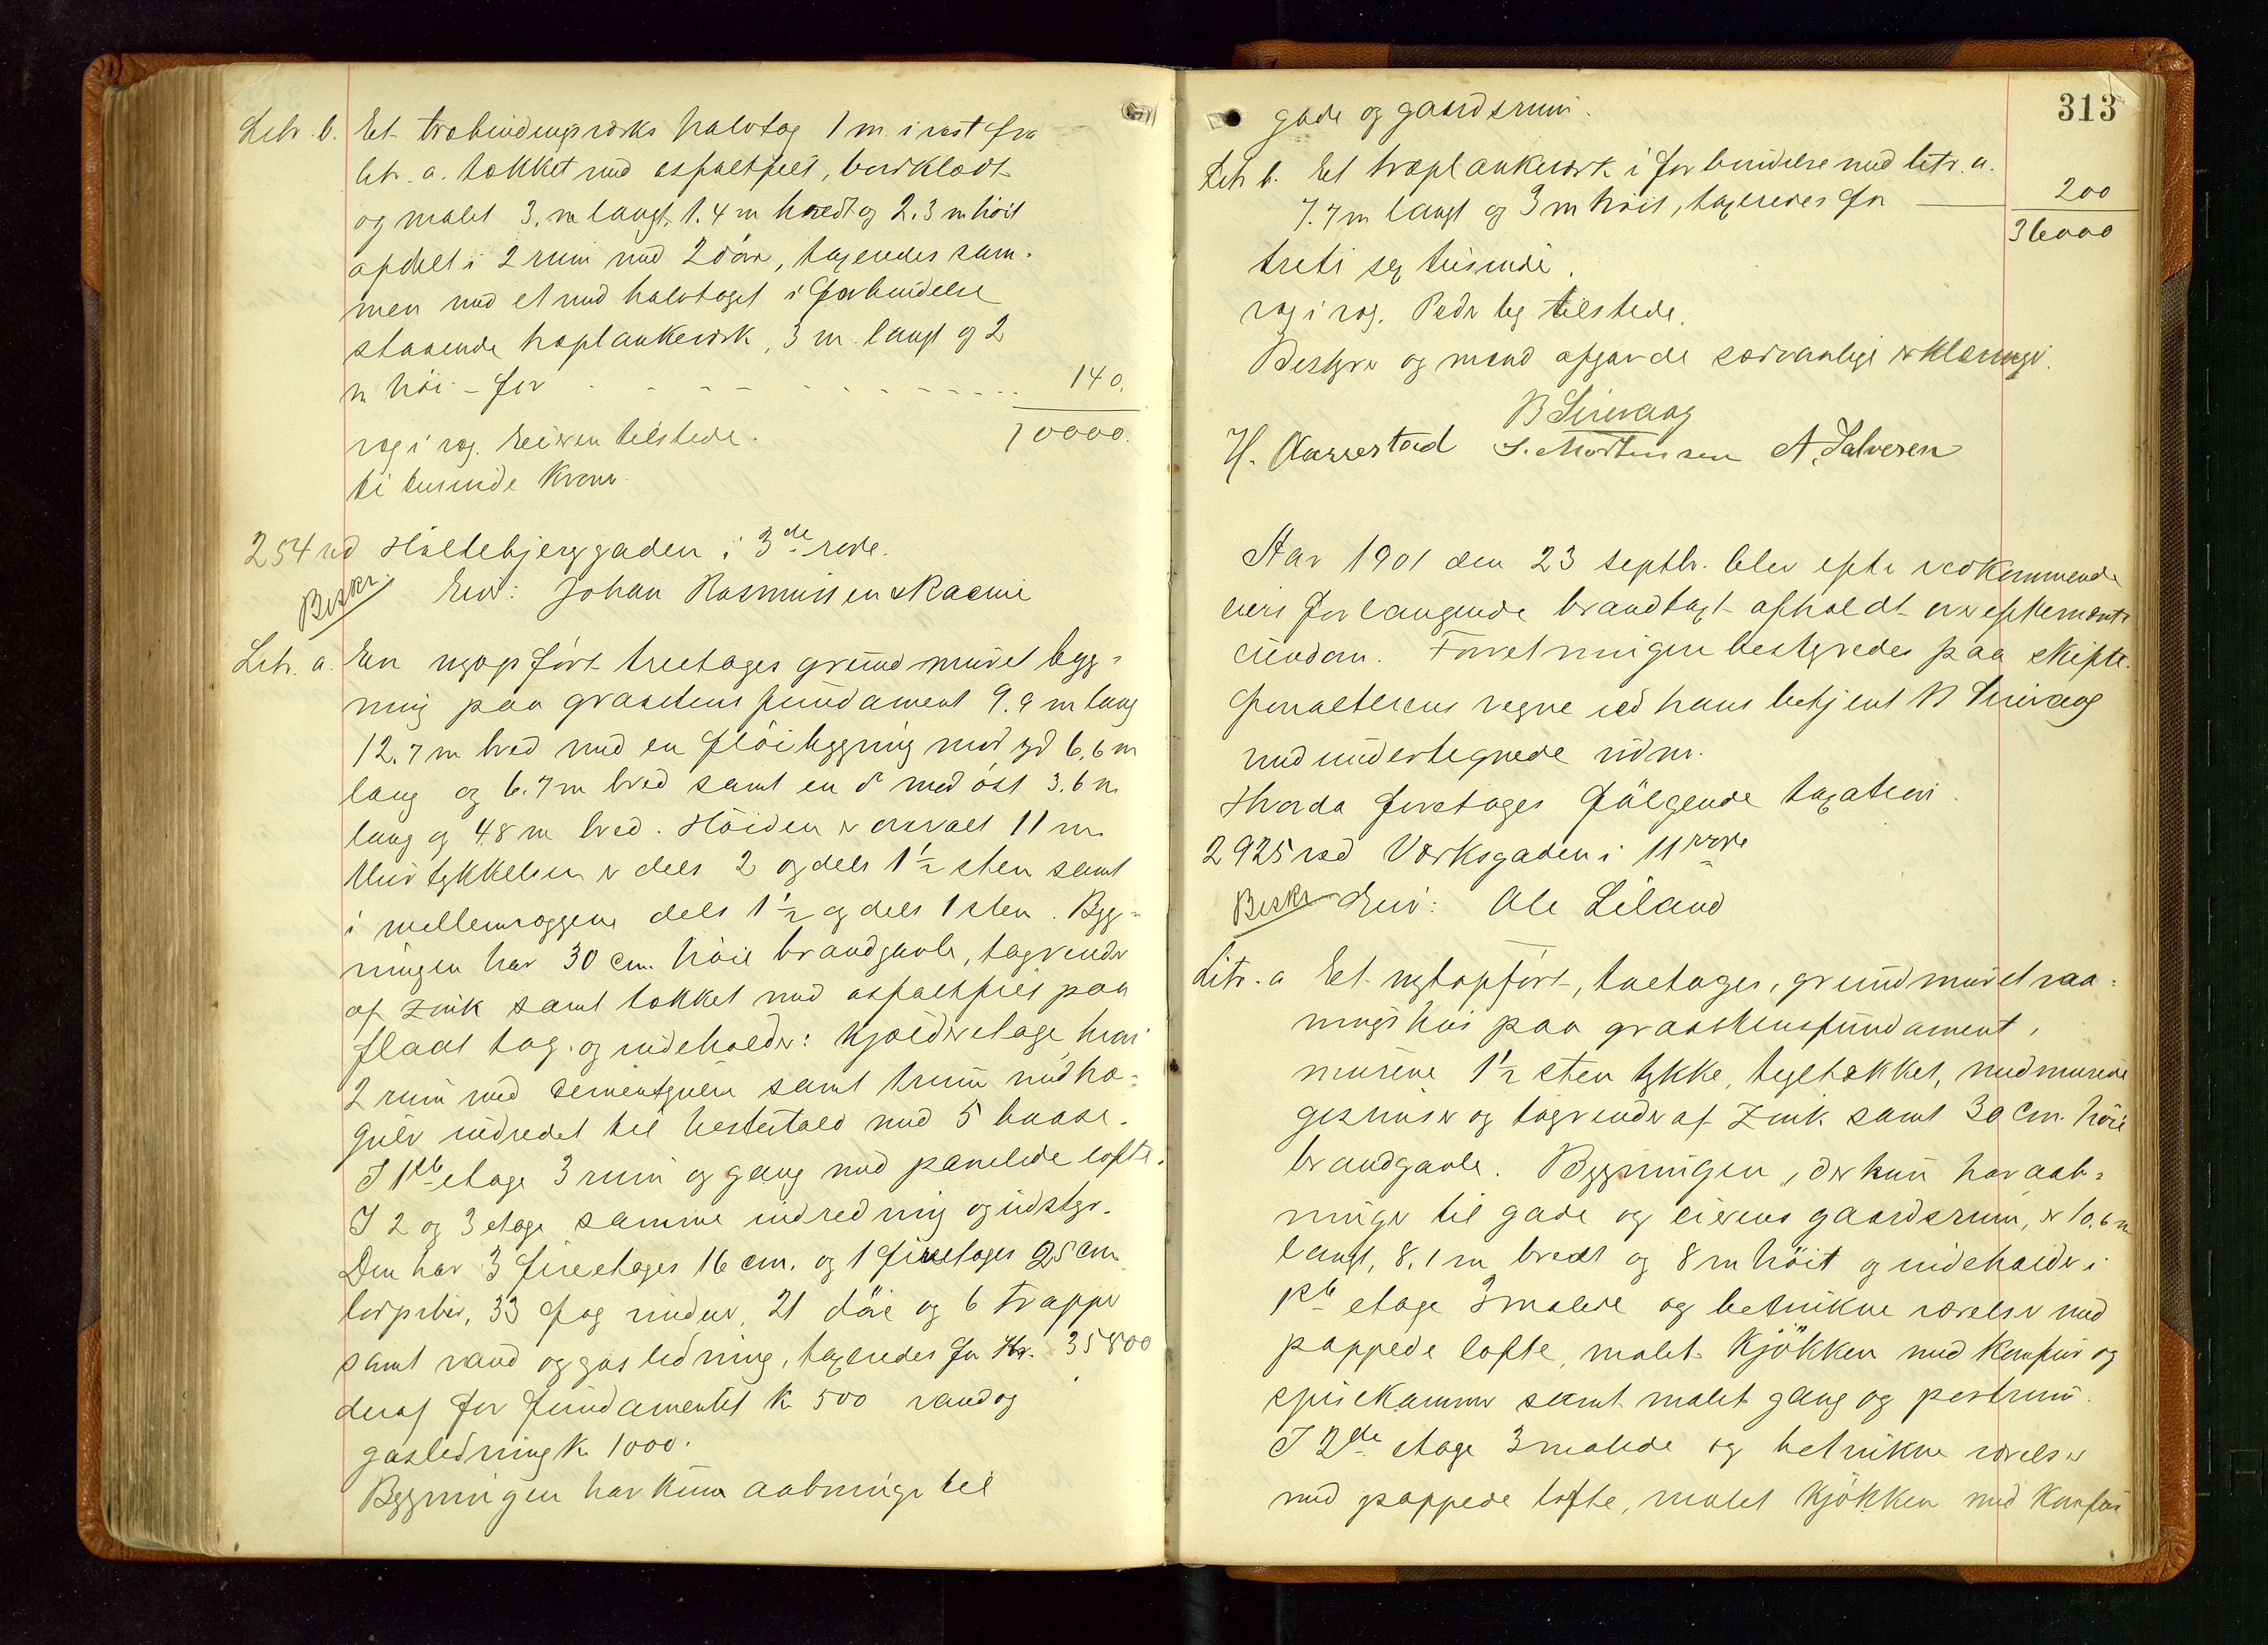 Litr. b. Et træbindingsværks halvtag 1 m. i vest fra
litr. a. tækket med asfaltfilt, bordklædt
og malet 3. m langt, 1.4 m bredt og 2.3 m höit
afdelt i 2 rum med 2 döre, taxeredes sam-
men med et med halvtaget i forbindelse
staaende træplankeværk, 3 m. langt og 2
m höi - for 140.
ræg i ræg. Eieren tilstede. 10000.
ti tusinde kroner.
254 ved Hóltebjerggaden i 3de rode.
Beskr. Eier: Johan Rasmussen Skadmi
Litr. a. En nyopfört treetages grundmuret byg-
ning paa graastens fundament 9.9 m lang
12.7 m bred med en flöibygning mod syd 6,6 m
lang og 6.7 m bred samt en do mod öst 3.6 m
lang og 4.8 m bred. Höiden er overalt 11 m.
Murtykkelsen er dels 2 og dels 1½ sten samt
i mellemvæggene dels 1½ og dels 1 sten. Byg-
ningen har 30 cm. höie brandgavle, tagrender
af zink samt tækket med asfaltfilt paa
fladt tag. og indeholder: Kjælderetage hvori
2 rum med cementgulve samt 1 rum med træ-
gulv indredet til hestestald med 5 baase.
I 1ste etage 3 rum og gang med panelede lofte.
I 2 og 3 etage samme indredning og udstyr.
Den har 3 fireetages 16 cm. og 1 fireetages 25 cm
lodpiber, 33 fag vinduer, 21 döre og 6 trapper
samt vand og gasledning, taxeredes for Kr. 35800
deraf for fundamentet k 500 vand og
gasledning K. 1000.
Bygningen har kun aabninger til
313
gade og gaardsrum.
Litr b. Et træplankeværk i forbindelse med litr. a.
7.7 m langt og 3 m höit, taxeredes for 200
36000
treti sex tusinde.
ræg i ræg. Peder Lég tilstede.
Bestyrer og mænd afgav de sædvanlige erklæringer.
B Sirevaag
H. Aarrestad S. Mortensen A. Salvesen
Aar 1901 den 23 septbr. blev efter vedkommende
eiers forlangende brandtaxt afholdt over efternævnte
eiendom. Forretningen bestyredes paa skifte-
forvalterens vegne ved hans betjent B Sirevaag
med undertegnede vidner.
Hvorda foretages fölgende taxation.
2925 ved Værksgaden i 11 rode
Beskr Eier: Ole Liland
Litr. a Et nyopfört, toetages, grundmuret vaa-
ningshus paa graastensfundament,
murene 1½ sten tykke, tegltækket, med murede
gesimser og tagrender af zink samt 30 cm. höie
brandgavle. Bygningen, der kun har aab-
ninger til gade og eierens gaardsrum, er 10.6 m
langt, 8.1 m bredt og 8 m höit og indeholder i
1ste etage 3 malede og betrukne værelser med
pappede lofte, malet kjökken med komfur og
spisekammer samt malet gang og portrum.
I 2de etage 3 malede og betrukne værelser
med pappede lofte, malet kjökken med komfur